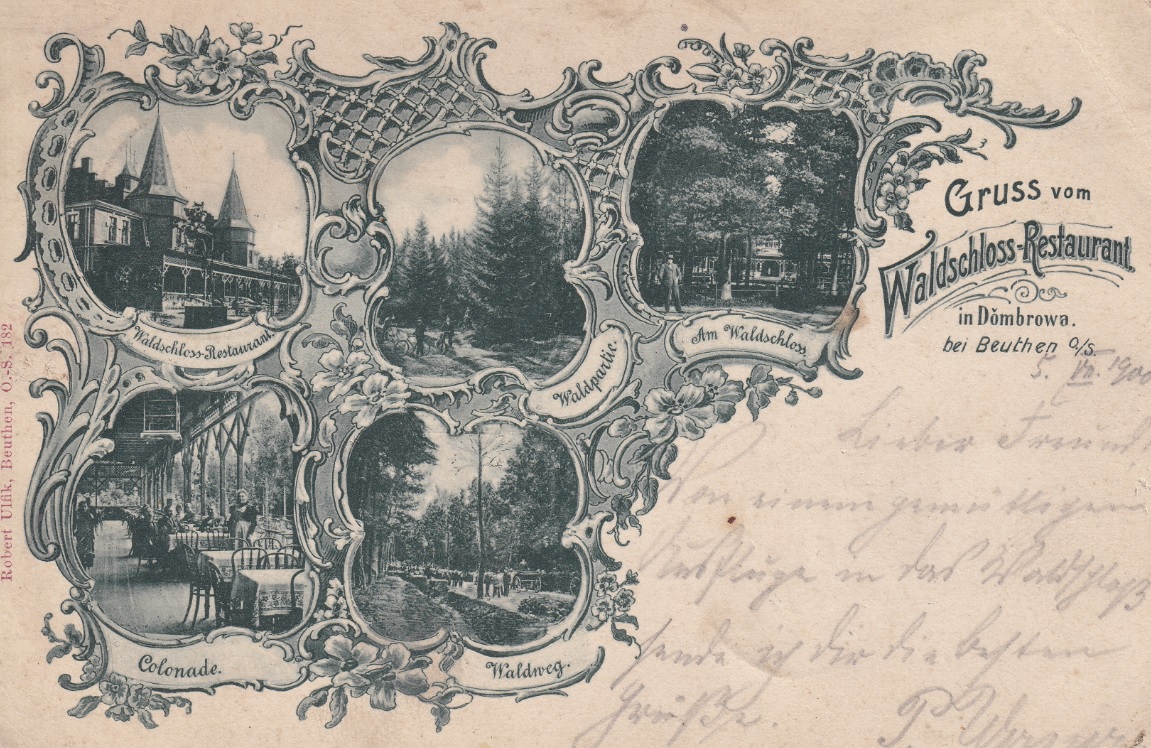 Gruss vom
Waldschloss-Restaurant
in Dombrowa.
bei Beuthen O/S.
5. VII. 1900
Lieber Freund!
Von einem gemütligen
Ausfluge in das Waldschloß
sende ich Dir die besten
Grüße.
Waldschloss-Restaurant.
Waldpartie.
Am Waldschloss.
Colonade.
Waldweg.
Robert Ulfik, Beuthen, O.-S. 182